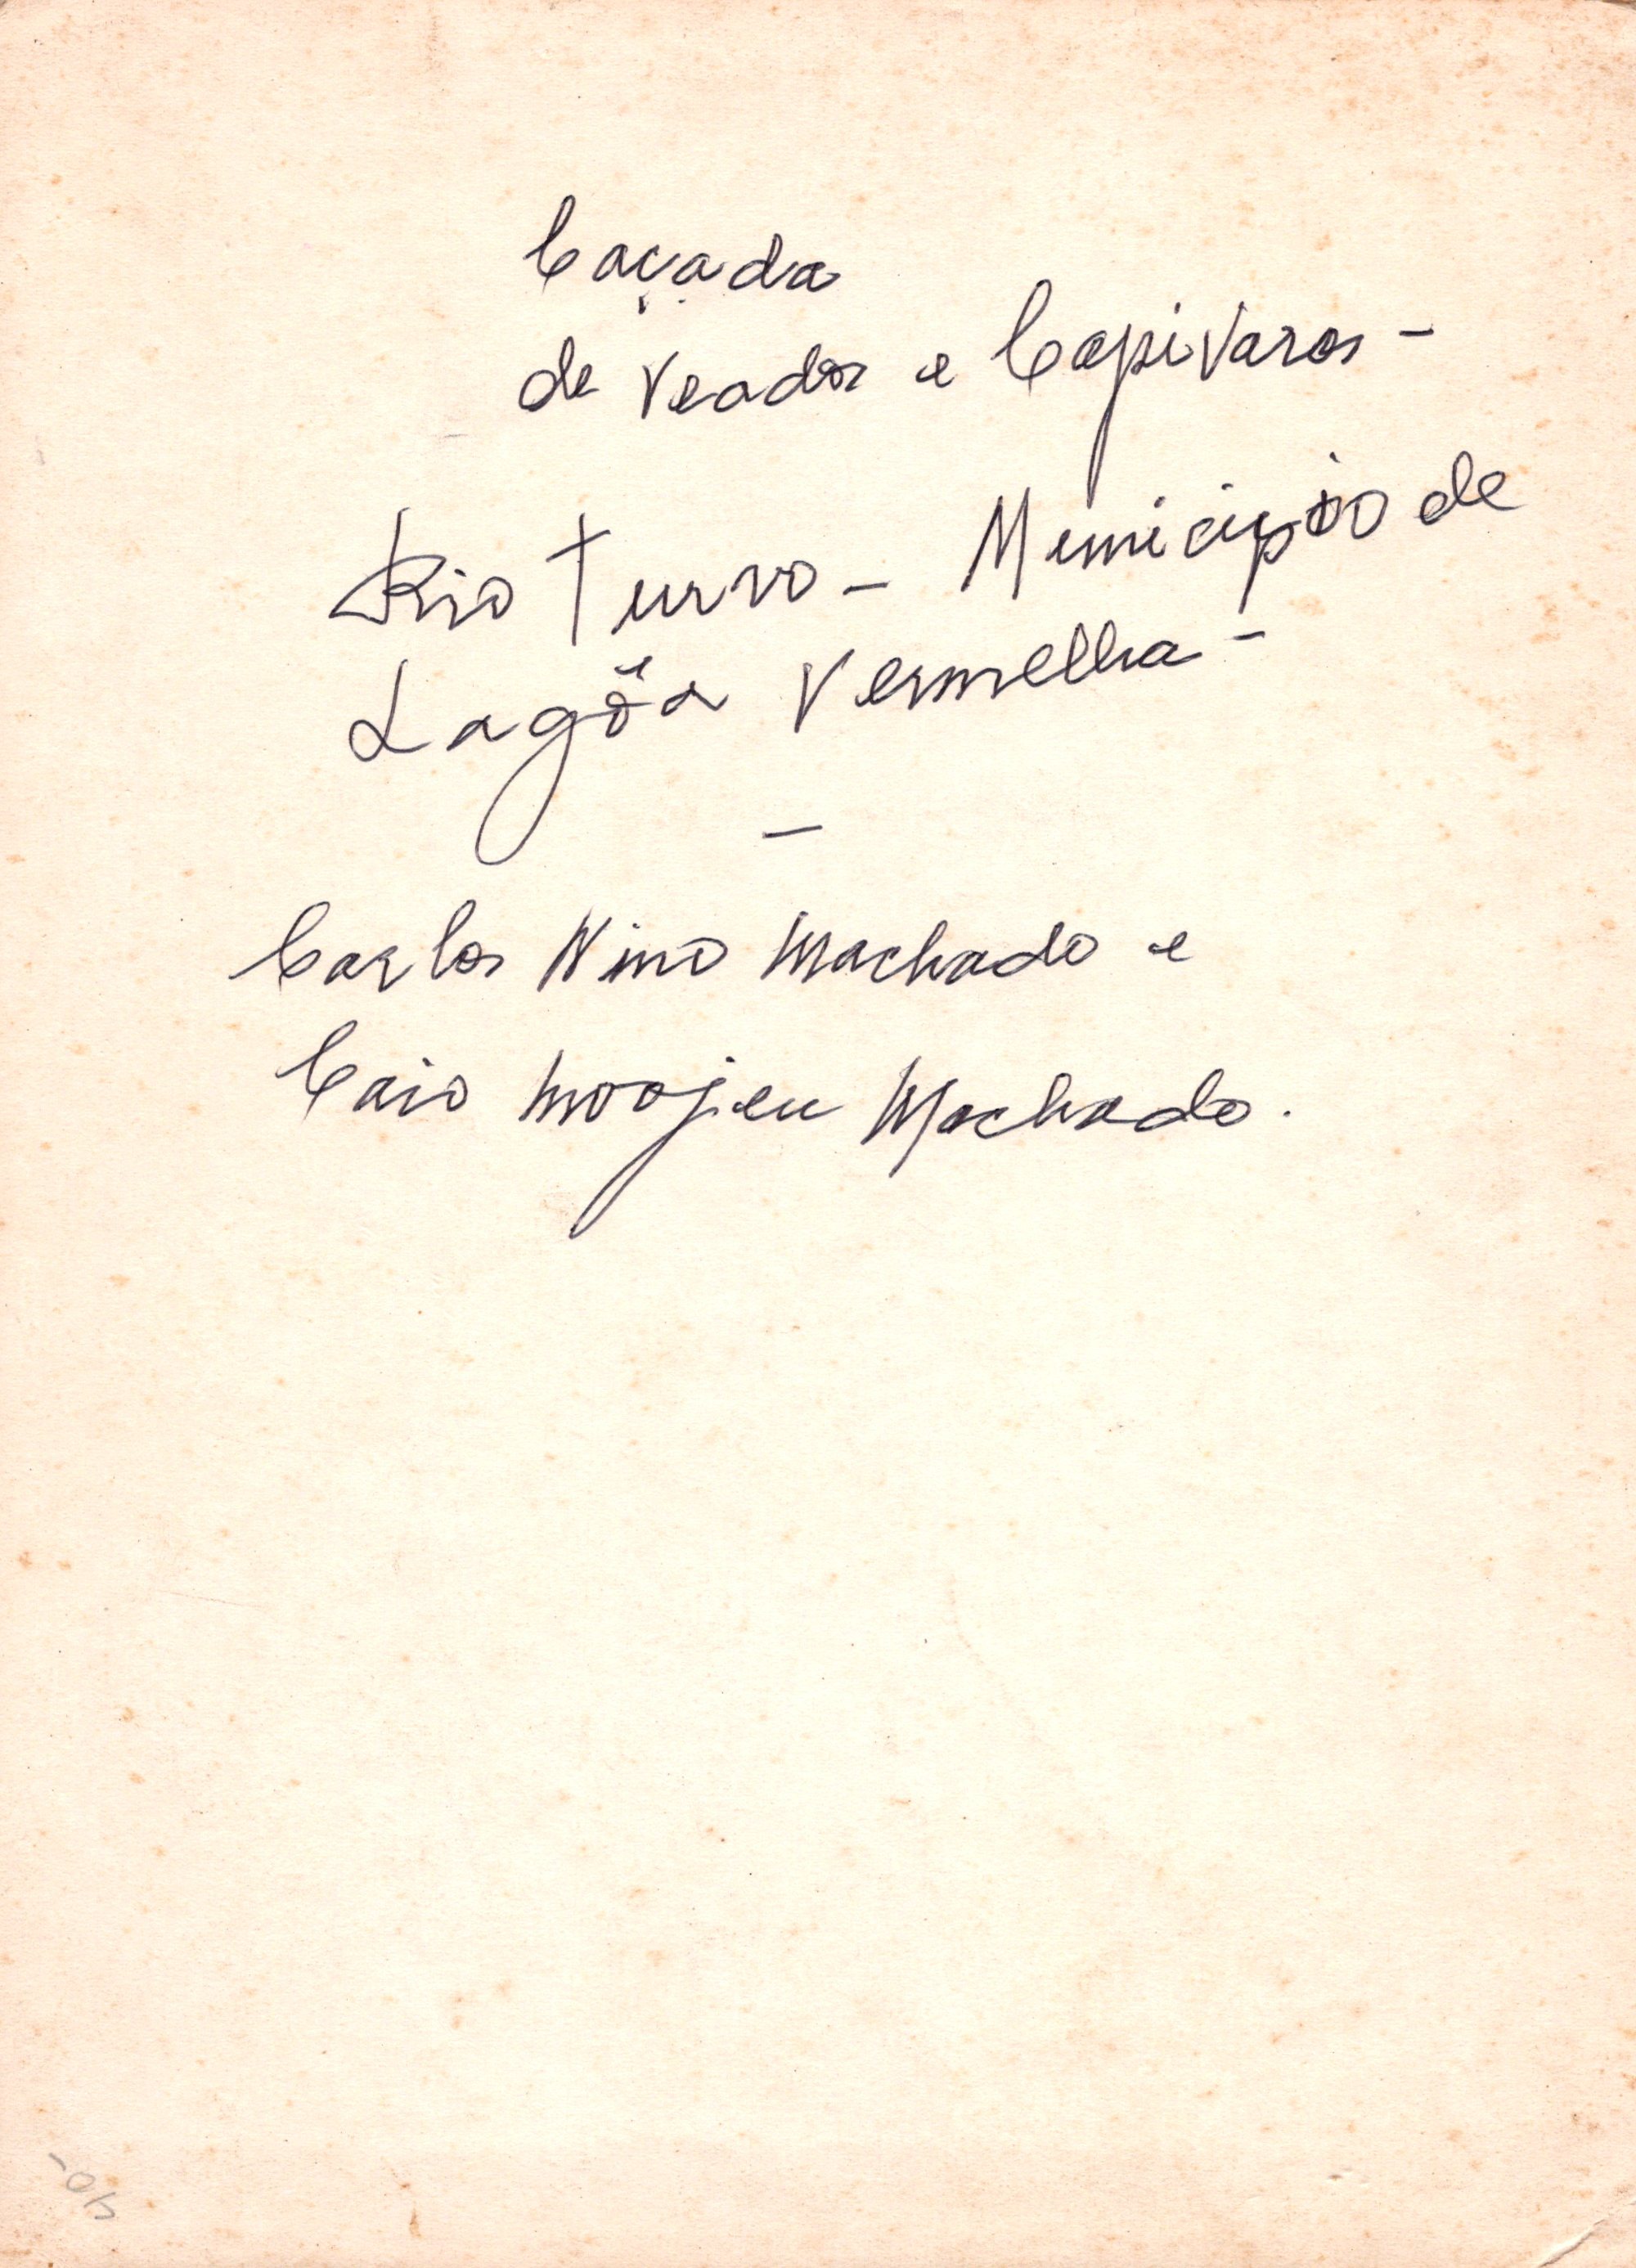 Caçada
de Veados e Capivaras -
Rio Turvo - Municipio de
Lagôa Vermelha -
-
Carlos Nino Machado e
Caio Moojen Machado.